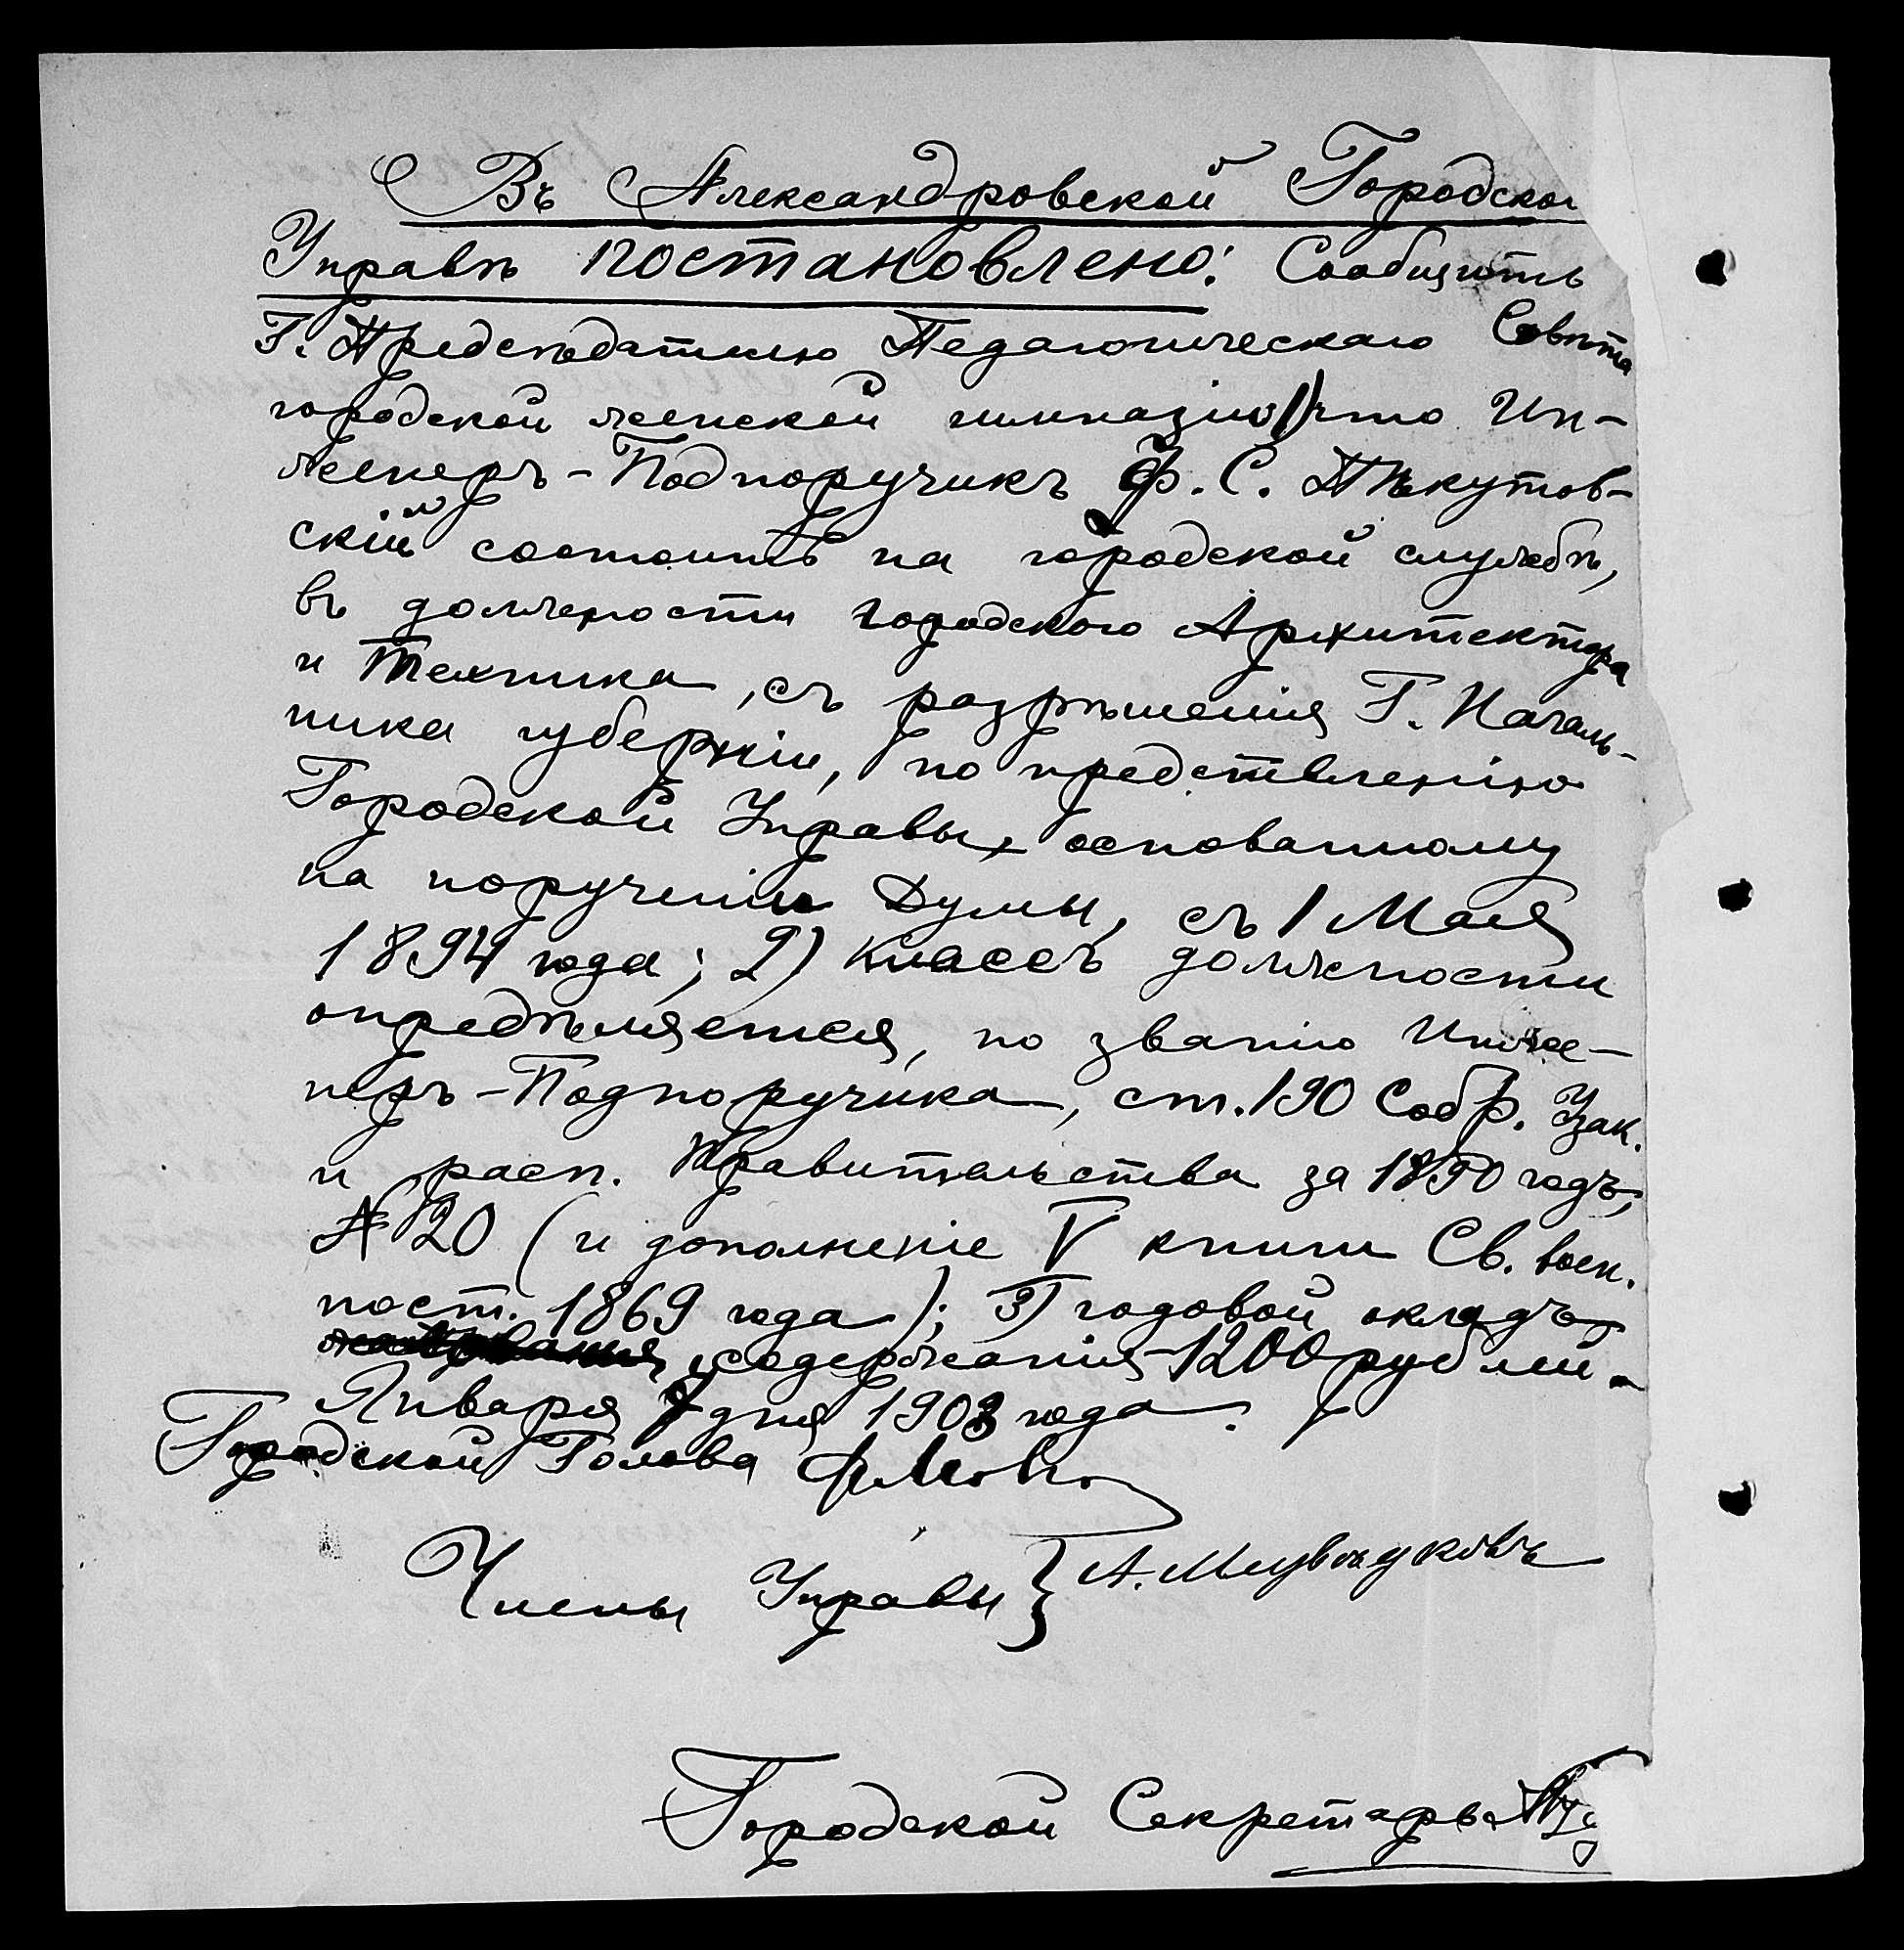 Въ Александровской Городской
Управѣ постановлено: Сообщить
Г. Предсѣдателю Педагогическаго Совѣта
городской женской гимназіи 1) что Ин-
женеръ-Подпоручикъ Ф. С. Якутов-
скій состоитъ на городской службѣ,
въ должности городского Архитектора
и Техника, съ разрѣшенія Г. Началь-
ника губерніи, по представленію
Городской Управы, основанному
на порученіи Думы, съ 1 Мая
1894 года; 2) классъ должности
опредѣляется, по званію Инже-
неръ-Подпоручика, ст. 190 Собр. Узак.
и расп. Правительства за 1890 годъ,
№ 20 (и дополненіе V книги Св. воен.
пост. 1869 года); 3) годовой окладъ
содержанія 1200 рублей.
Января дня 1903 года.
Городской Голова
Члены Управы } А.
Городской Секретарь